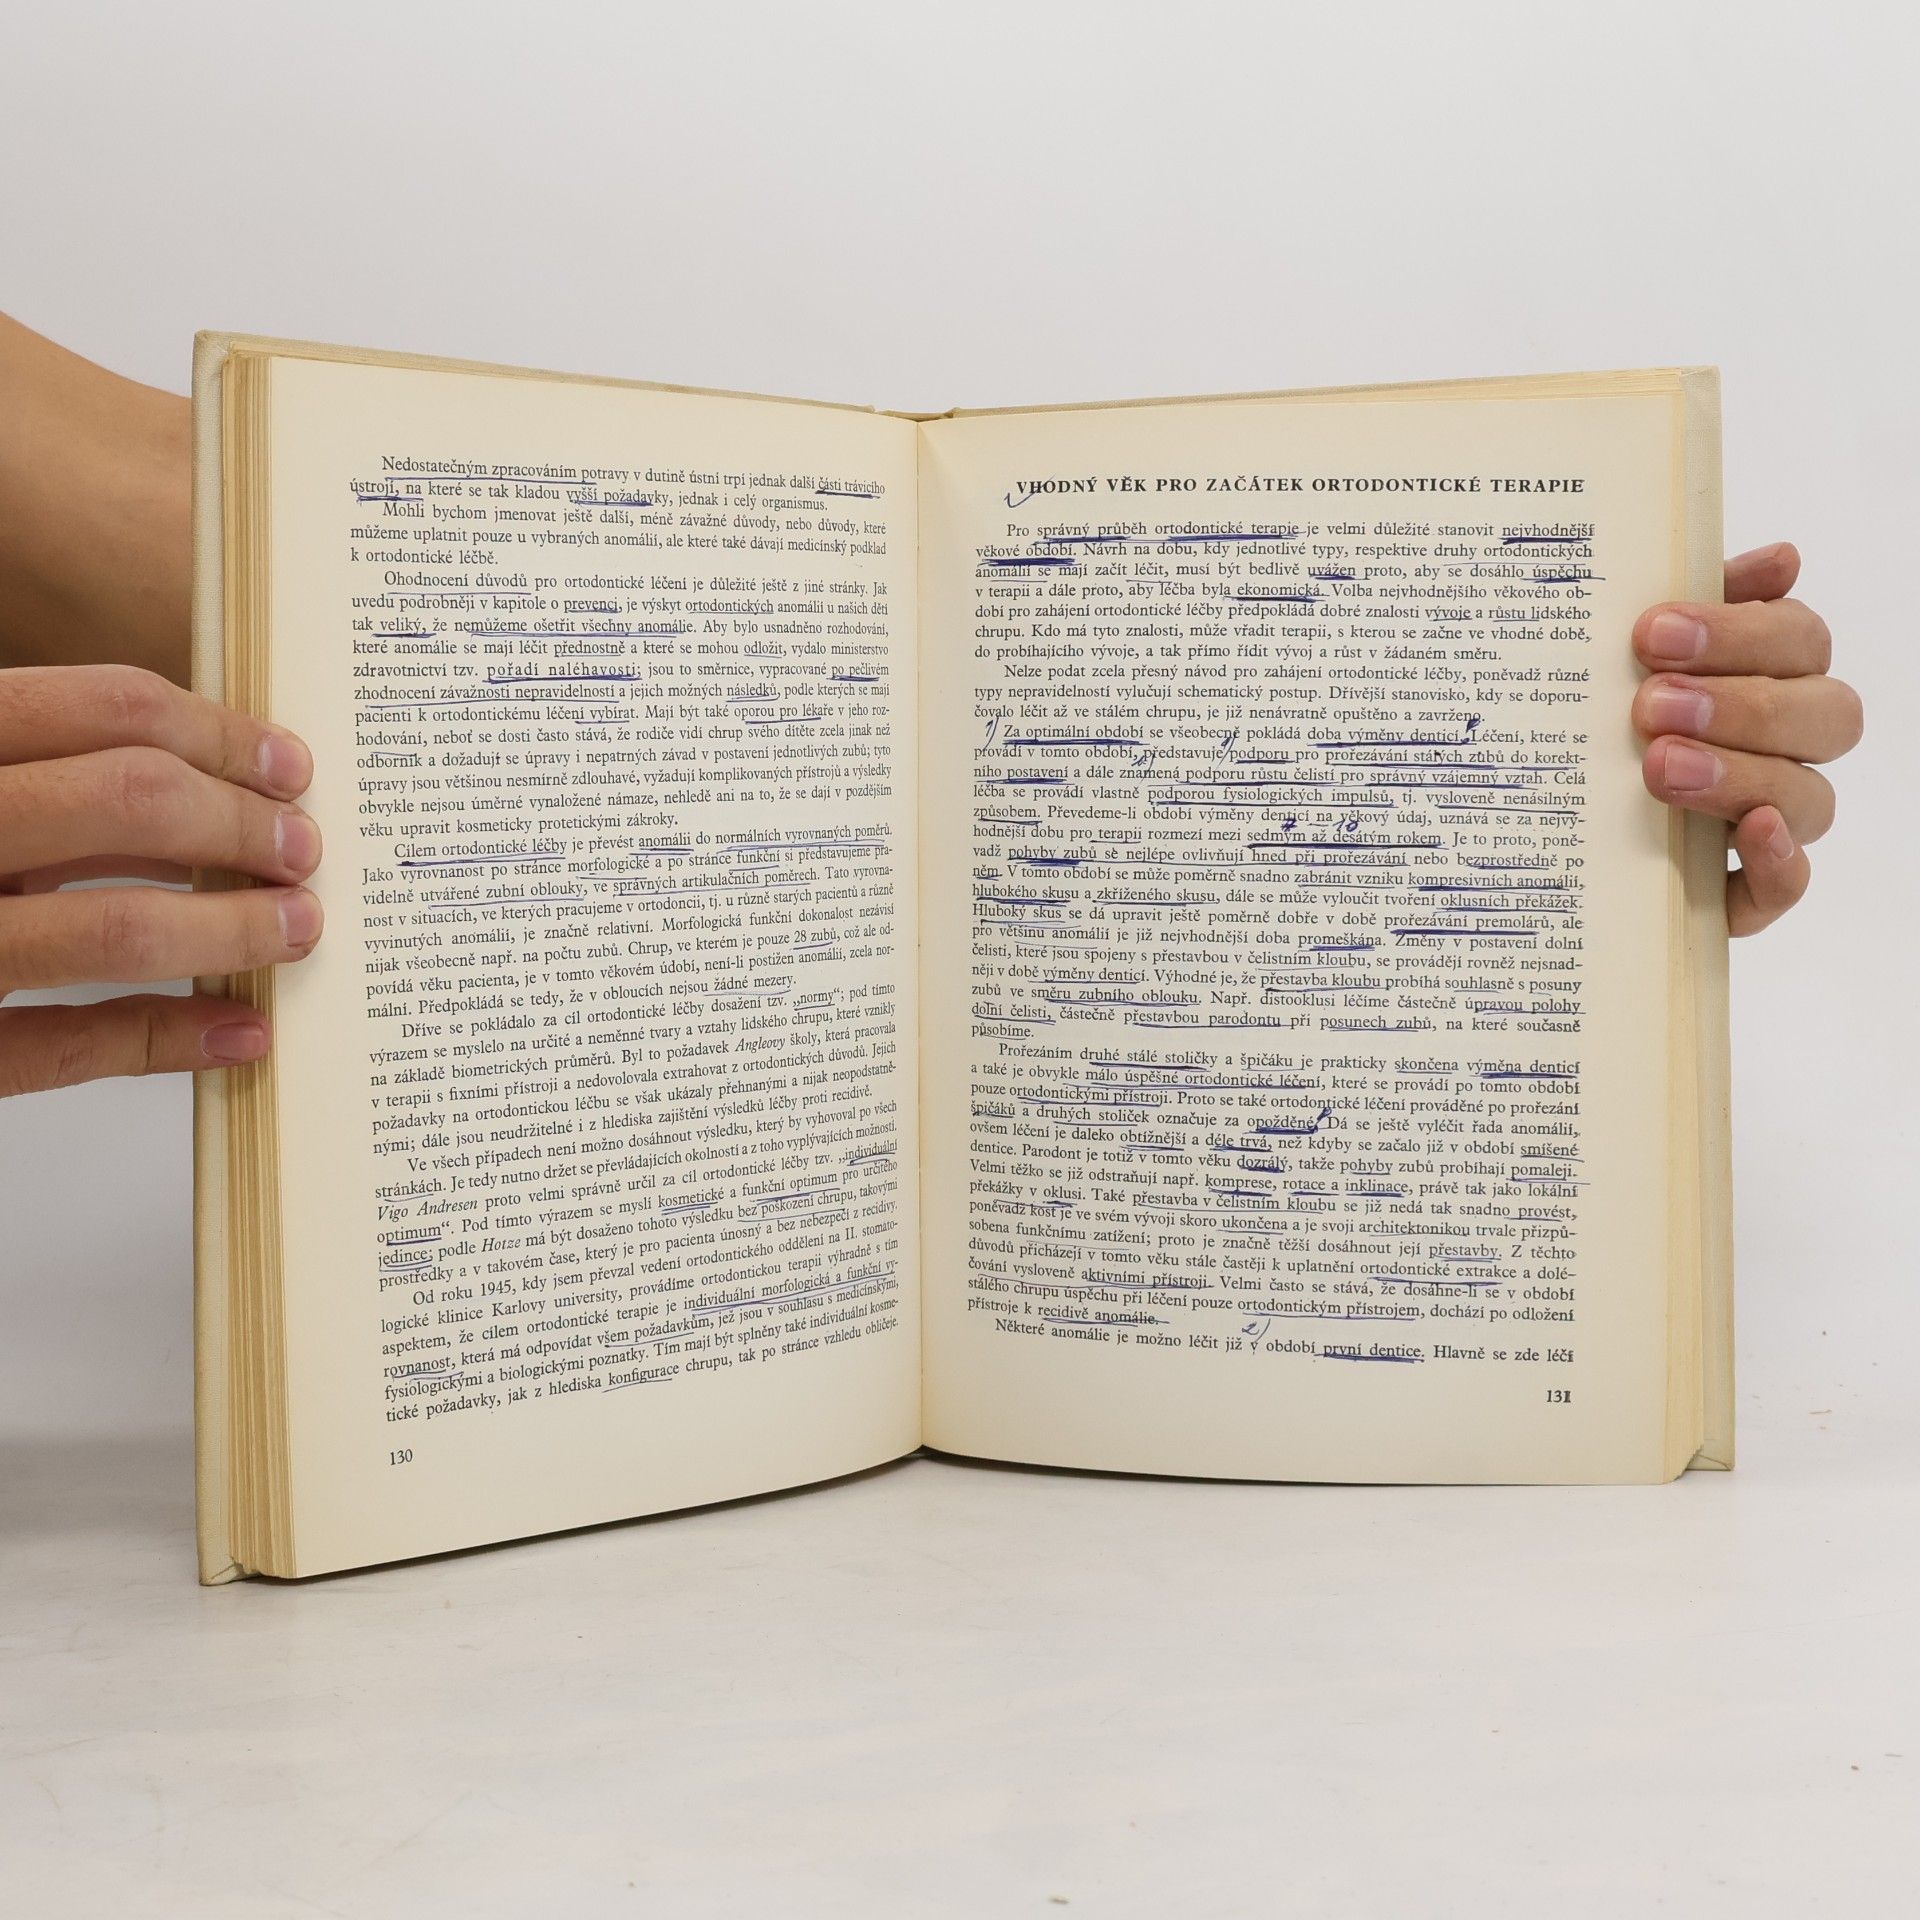 Nedostatečným zpracováním potravy v dutině ústní trpí jednak další části trávicího
ústrojí, na které se tak kladou vyšší požadavky, jednak i celý organismus.
Mohli bychom jmenovat ještě další, méně závažné důvody, nebo důvody, které
můžeme uplatnit pouze u vybraných anomálií, ale které také dávají medicínský podklad
k ortodontické léčbě.
Ohodnocení důvodů pro ortodontické léčení je důležité ještě z jiné stránky. Jak
uvedu podrobněji v kapitole o prevenci, je výskyt ortodontických anomálií u našich dětí
tak veliký, že nemůžeme ošetřit všechny anomálie. Aby bylo usnadněno rozhodování,
které anomálie se mají léčit přednostně a které se mohou odložit, vydalo ministerstvo
zdravotnictví tzv. pořadí naléhavosti; jsou to směrnice, vypracované po pečlivém
zhodnocení závažnosti nepravidelností a jejich možných následků, podle kterých se mají
pacienti k ortodontickému léčení vybírat. Mají být také oporou pro lékaře v jeho roz-
hodování, neboť se dosti často stává, že rodiče vidí chrup svého dítěte zcela jinak než
odborník a dožadují se úpravy i nepatrných závad v postavení jednotlivých zubů; tyto
úpravy jsou většinou nesmírně zdlouhavé, vyžadují komplikovaných přístrojů a výsledky
obvykle nejsou úměrné vynaložené námaze, nehledě ani na to, že se dají v pozdějším
věku upravit kosmeticky protetickými zákroky.
Cílem ortodontické léčby je převést anomálii do normálních vyrovnaných poměrů.
Jako vyrovnanost po stránce morfologické a po stránce funkční si představujeme pra-
videlně utvářené zubní oblouky, ve správných artikulačních poměrech. Tato vyrovna-
nost v situacích, ve kterých pracujeme v ortodoncii, tj. u různě starých pacientů a různě
vyvinutých anomálií, je značně relativní. Morfologická funkční dokonalost nezávisí
nijak všeobecně např. na počtu zubů. Chrup, ve kterém je pouze 28 zubů, což ale od-
povídá věku pacienta, je v tomto věkovém údobí, není-li postižen anomálií, zcela nor-
mální. Předpokládá se tedy, že v obloucích nejsou žádné mezery.
Dříve se pokládalo za cíl ortodontické léčby dosažení tzv. „normy“; pod tímto
výrazem se myslelo na určité a neměnné tvary a vztahy lidského chrupu, které vznikly
na základě biometrických průměrů. Byl to požadavek Angleovy školy, která pracovala
v terapii s fixními přístroji a nedovolovala extrahovat z ortodontických důvodů. Jejich
požadavky na ortodontickou léčbu se však ukázaly přehnanými a nijak neopodstatně-
nými; dále jsou neudržitelné i z hlediska zajištění výsledků léčby proti recidivě.
Ve všech případech není možno dosáhnout výsledku, který by vyhovoval po všech
stránkách. Je tedy nutno držet se převládajících okolností a z toho vyplývajících možností.
Vigo Andresen proto velmi správně určil za cíl ortodontické léčby tzv. „individuální
optimum“. Pod tímto výrazem se myslí kosmetické a funkční optimum pro určitého
jedince; podle Hotze má být dosaženo tohoto výsledku bez poškození chrupu, takovými
prostředky a v takovém čase, který je pro pacienta únosný a bez nebezpečí z recidivy.
Od roku 1945, kdy jsem převzal vedení ortodontického oddělení na II. stomato-
logické klinice Karlovy university, provádíme ortodontickou terapii výhradně s tím
aspektem, že cílem ortodontické terapie je individuální morfologická a funkční vy-
rovnanost, která má odpovídat všem požadavkům, jež jsou v souhlasu s medicínskými,
fysiologickými a biologickými poznatky. Tím mají být splněny také individuální kosme-
tické požadavky, jak z hlediska konfigurace chrupu, tak po stránce vzhledu obličeje.
130
VHODNÝ VĚK PRO ZAČÁTEK ORTODONTICKÉ TERAPIE
Pro správný průběh ortodontické terapie je velmi důležité stanovit nejvhodnější
věkové období. Návrh na dobu, kdy jednotlivé typy, respektive druhy ortodontických
anomálií se mají začít léčit, musí být bedlivě uvážen proto, aby se dosáhlo úspěchu
v terapii a dále proto, aby léčba byla ekonomická. Volba nejvhodnějšího věkového ob-
dobí pro zahájení ortodontické léčby předpokládá dobré znalosti vývoje a růstu lidského
chrupu. Kdo má tyto znalosti, může vřadit terapii, s kterou se začne ve vhodné době,
do probíhajícího vývoje, a tak přímo řídit vývoj a růst v žádaném směru.
Nelze podat zcela přesný návod pro zahájení ortodontické léčby, poněvadž různé
typy nepravidelností vylučují schematický postup. Dřívější stanovisko, kdy se doporu-
čovalo léčit až ve stálém chrupu, je již nenávratně opuštěno a zavrženo.
1) Za optimální období se všeobecně pokládá doba výměny denticí. Léčení, které se
provádí v tomto období, představuje podporu pro prořezávání stálých zubů do korekt-
ního postavení a dále znamená podporu růstu čelistí pro správný vzájemný vztah. Celá
léčba se provádí vlastně podporou fysiologických impulsů, tj. vysloveně nenásilným
způsobem. Převedeme-li období výměny denticí na věkový údaj, uznává se za nejvý-
7 10
hodnější dobu pro terapii rozmezí mezi sedmým až desátým rokem. Je to proto, poně-
vadž pohyby zubů se nejlépe ovlivňují hned při prořezávání nebo bezprostředně po
něm. V tomto období se může poměrně snadno zabránit vzniku kompresivních anomálií,
hlubokého skusu a zkříženého skusu, dále se může vyloučit tvoření oklusních překážek.
Hluboký skus se dá upravit ještě poměrně dobře v době prořezávání premolárů, ale
pro většinu anomálií je již nejvhodnější doba promeškána. Změny v postavení dolní
čelisti, které jsou spojeny s přestavbou v čelistním kloubu, se provádějí rovněž nejsnad-
něji v době výměny denticí. Výhodné je, že přestavba kloubu probíhá souhlasně s posuny
zubů ve směru zubního oblouku. Např. distooklusi léčíme částečně úpravou polohy
dolní čelisti, částečně přestavbou parodontu při posunech zubů, na které současně
působíme.
Prořezáním druhé stálé stoličky a špičáku je prakticky skončena výměna denticí
a také je obvykle málo úspěšné ortodontické léčení, které se provádí po tomto období
pouze ortodontickými přístroji. Proto se také ortodontické léčení prováděné po prořezání
špičáků a druhých stoliček označuje za opožděné. Dá se ještě vyléčit řada anomálií,
ovšem léčení je daleko obtížnější a déle trvá, než kdyby se začalo již v období smíšené
dentice. Parodont je totiž v tomto věku dozrálý, takže pohyby zubů probíhají pomaleji.
Velmi těžko se již odstraňují např. komprese, rotace a inklinace, právě tak jako lokální
překážky v oklusi. Také přestavba v čelistním kloubu se již nedá tak snadno provést,
poněvadž kost je ve svém vývoji skoro ukončena a je svoji architektonikou trvale přizpů-
sobena funkčnímu zatížení; proto je značně těžší dosáhnout její přestavby. Z těchto
důvodů přicházejí v tomto věku stále častěji k uplatnění ortodontické extrakce a dolé-
čování vysloveně aktivními přístroji. Velmi často se stává, že dosáhne-li se v období
stálého chrupu úspěchu při léčení pouze ortodontickým přístrojem, dochází po odložení
přístroje k recidivě anomálie.
2)
Některé anomálie je možno léčit již v období první dentice. Hlavně se zde léčí
131